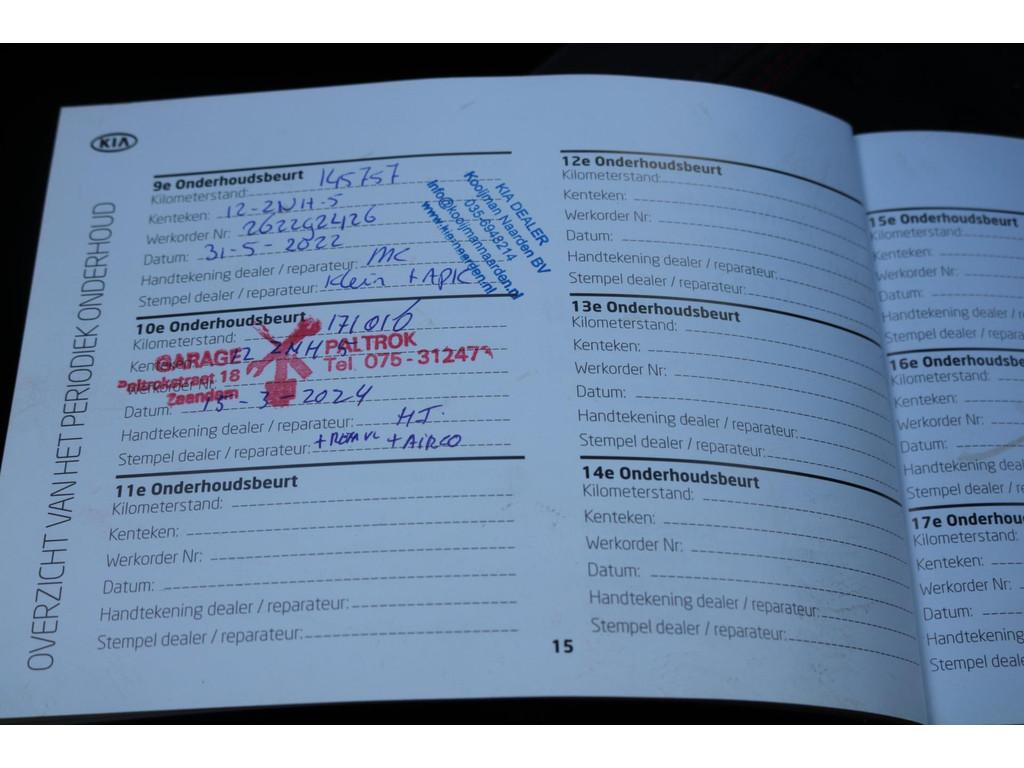 KIA
OVERZICHT VAN HET PERIODIEK ONDERHOUD
9e Onderhoudsbeurt
Kilometerstand: 145757
Kenteken: 12-ZNH-5
Werkorder Nr: 2622g2426
Datum: 31-5-2022
Handtekening dealer / reparateur: MC
Stempel dealer / reparateur: Klein + APK
KIA DEALER
Kooijman Naarden BV
035-6948214
info@kooijmannaarden.nl
www.kianaarden.nl
10e Onderhoudsbeurt
Kilometerstand: 171016
Kenteken: 12 ZNH 5
Werkorder Nr:
Datum: 15-3-2024
Handtekening dealer / reparateur: HJ.
Stempel dealer / reparateur: + AIRCO
GARAGE PALTROK
Paltrokstraat 18 Tel. 075 - 31247
Zaandam
11e Onderhoudsbeurt
Kilometerstand:
Kenteken:
Werkorder Nr:
Datum:
Handtekening dealer / reparateur:
Stempel dealer / reparateur:
12e Onderhoudsbeurt
Kilometerstand:
Kenteken:
Werkorder Nr:
Datum:
Handtekening dealer / reparateur:
Stempel dealer / reparateur:
13e Onderhoudsbeurt
Kilometerstand:
Kenteken:
Werkorder Nr:
Datum:
Handtekening dealer / reparateur:
Stempel dealer / reparateur:
14e Onderhoudsbeurt
Kilometerstand:
Kenteken:
Werkorder Nr:
Datum:
Handtekening dealer / reparateur:
Stempel dealer / reparateur:
15
15e Onderhoudsbeurt
Kilometerstand:
Kenteken:
Werkorder Nr:
Datum:
Handtekening dealer / r
Stempel dealer / repara
16e Onderhoudsbe
Kilometerstand:
Kenteken:
Werkorder Nr:
Datum:
Handtekening deal
Stempel dealer / re
17e Onderhou
Kilometerstand:
Kenteken:
Werkorder Nr:
Datum:
Handtekening
Stempel deale